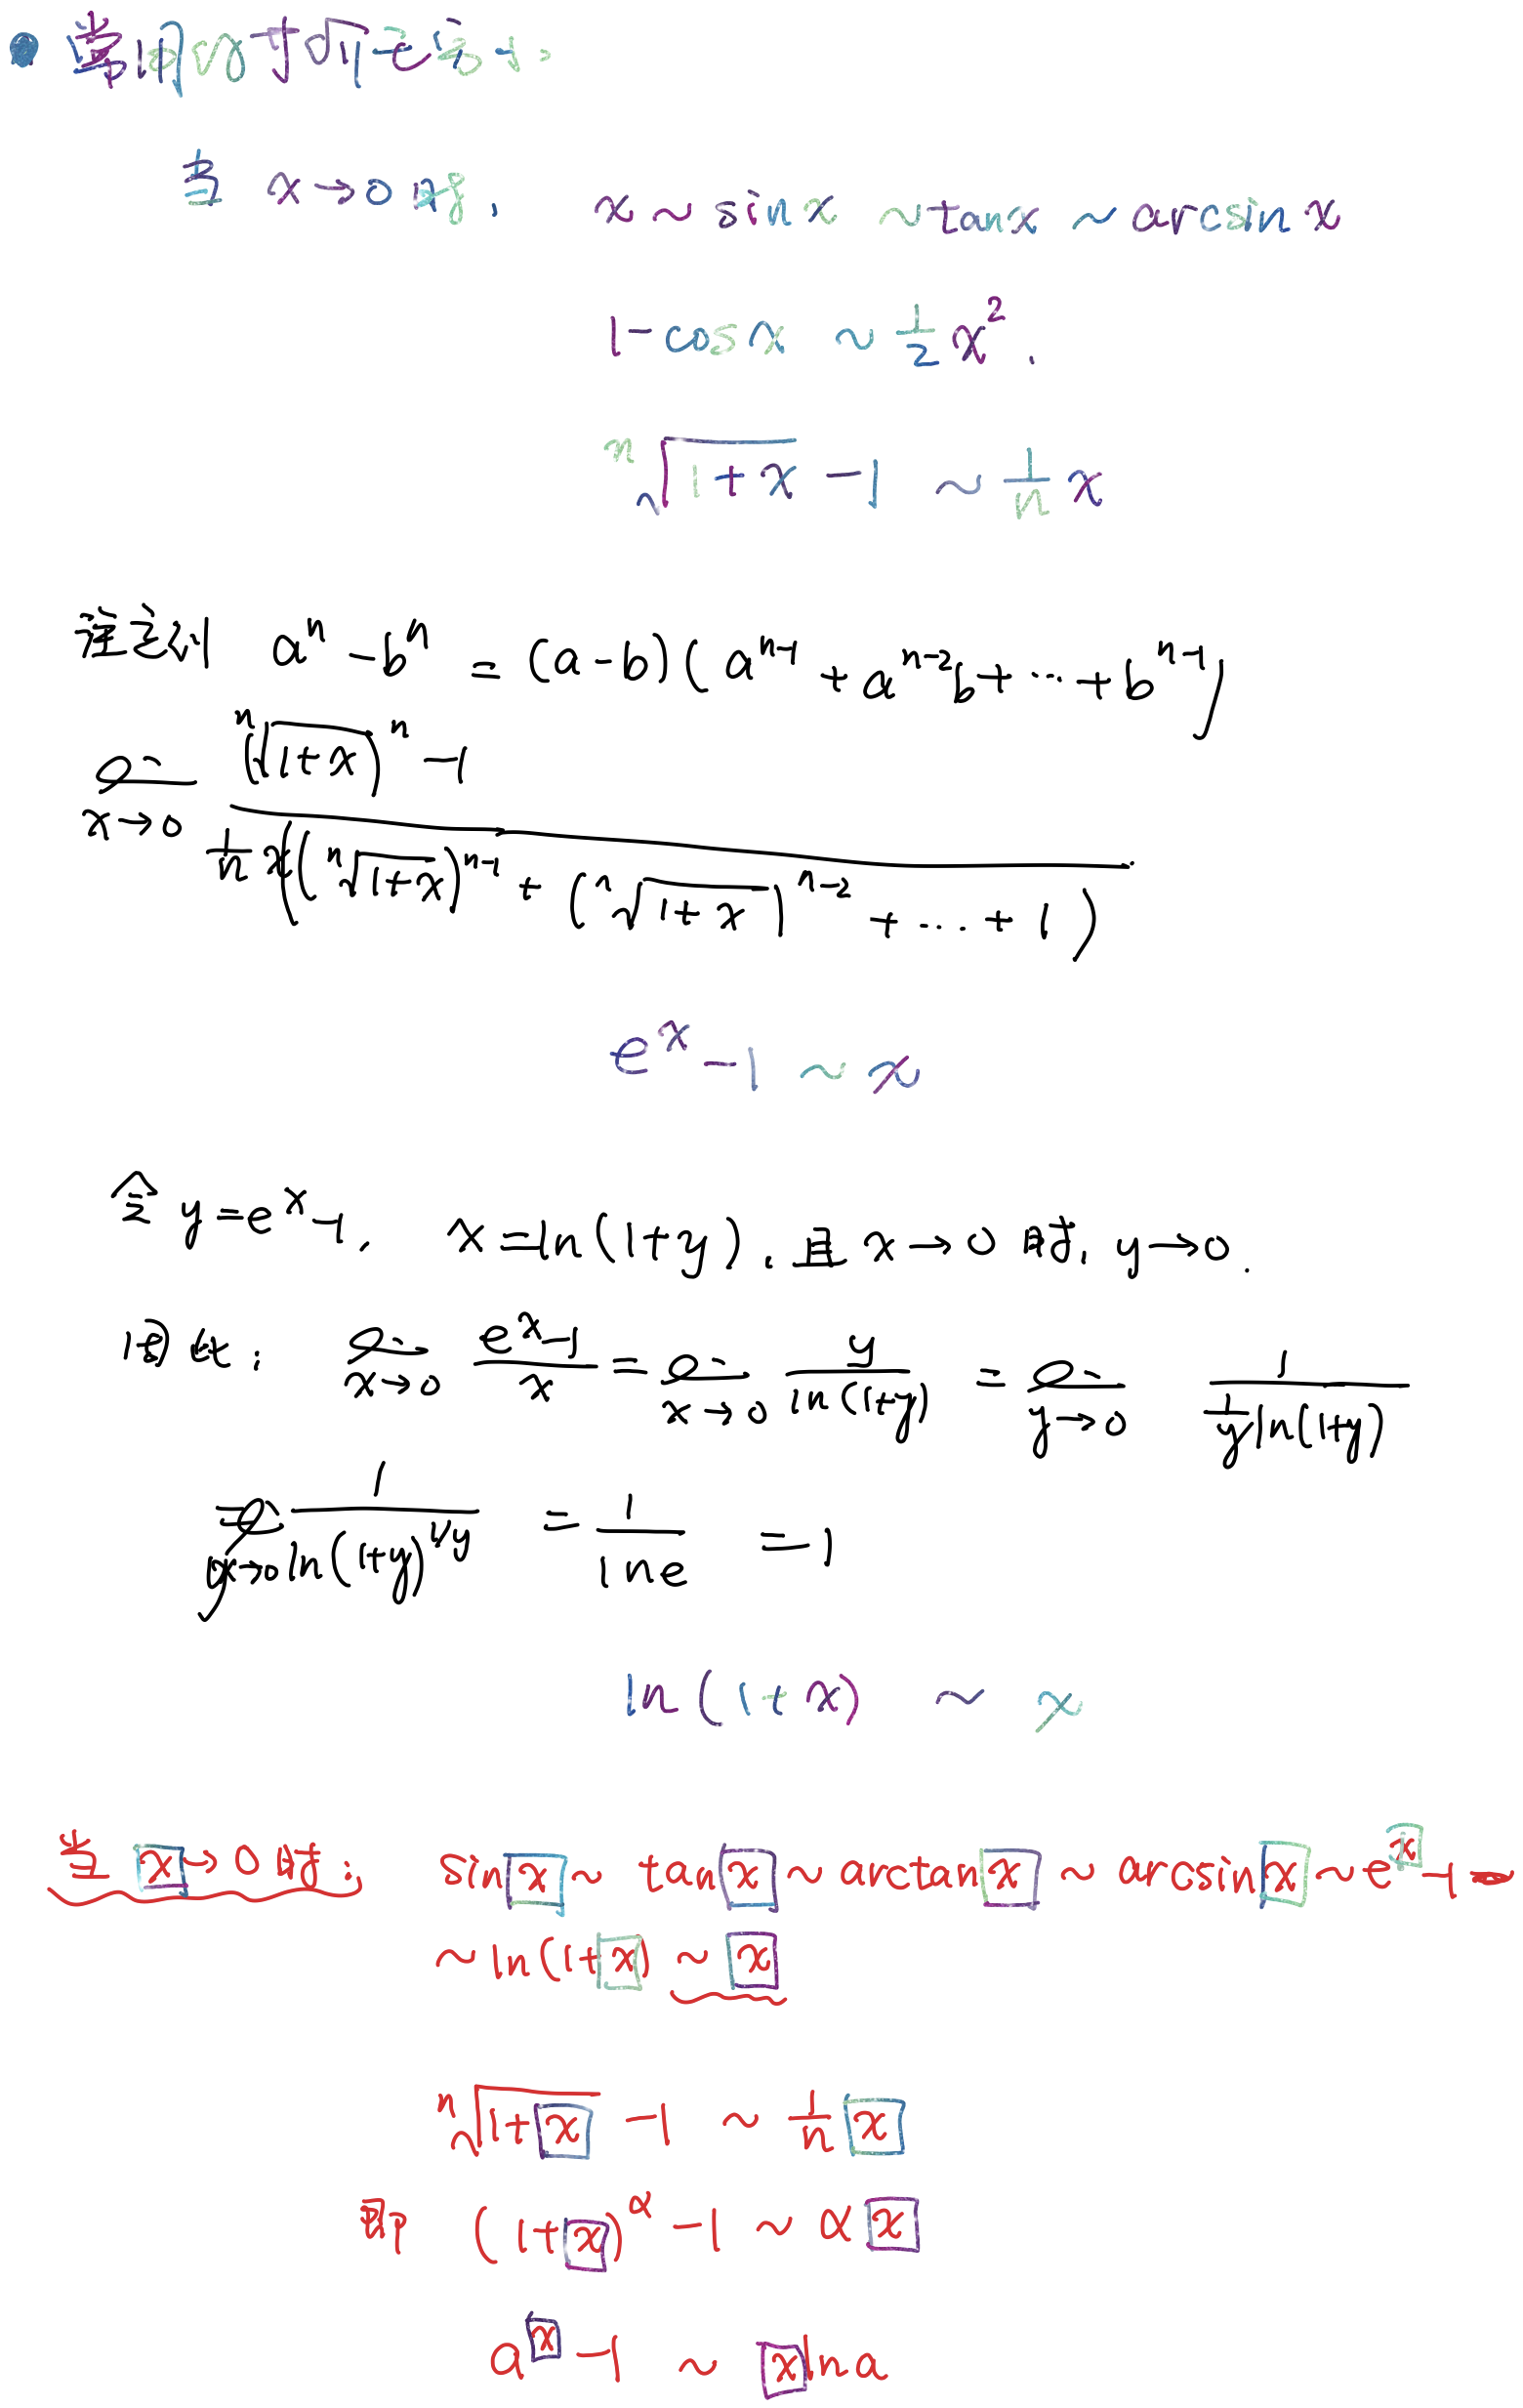 • 常用的等价无穷小.
当 x→0 时, x ~ sinx ~ tanx ~ arcsin x
1-cosx ~ \frac{1}{2}x^2.
\sqrt[n]{1+x} -1 ~ \frac{1}{n}x
注意到 a^n - b^n = (a-b)(a^{n-1} + a^{n-2}b + ⋯ + b^{n-1})
\lim_{x→0} \frac{(\sqrt[n]{1+x})^n -1}{\frac{1}{n}x((\sqrt[n]{1+x})^{n-1} + (\sqrt[n]{1+x})^{n-2} + ⋯ + 1)}
e^x -1 ~ x
令 y=e^x-1, x=ln(1+y), 且 x→0 时, y→0.
因此: \lim_{x→0} \frac{e^x-1}{x} = \lim_{x→0} \frac{y}{ln(1+y)} = \lim_{y→0} \frac{1}{\frac{1}{y}ln(1+y)}
= \lim_{y→0} \frac{1}{ln(1+y)^{1/y}} = \frac{1}{lne} = 1
ln(1+x) ~ x
当 x→0 时: sin x ~ tan x ~ arctan x ~ arcsin x ~ e^x -1
~ ln(1+x) ~ x
\sqrt[n]{1+x} -1 ~ \frac{1}{n} x
即 (1+x)^α -1 ~ α x
a^x -1 ~ x lna